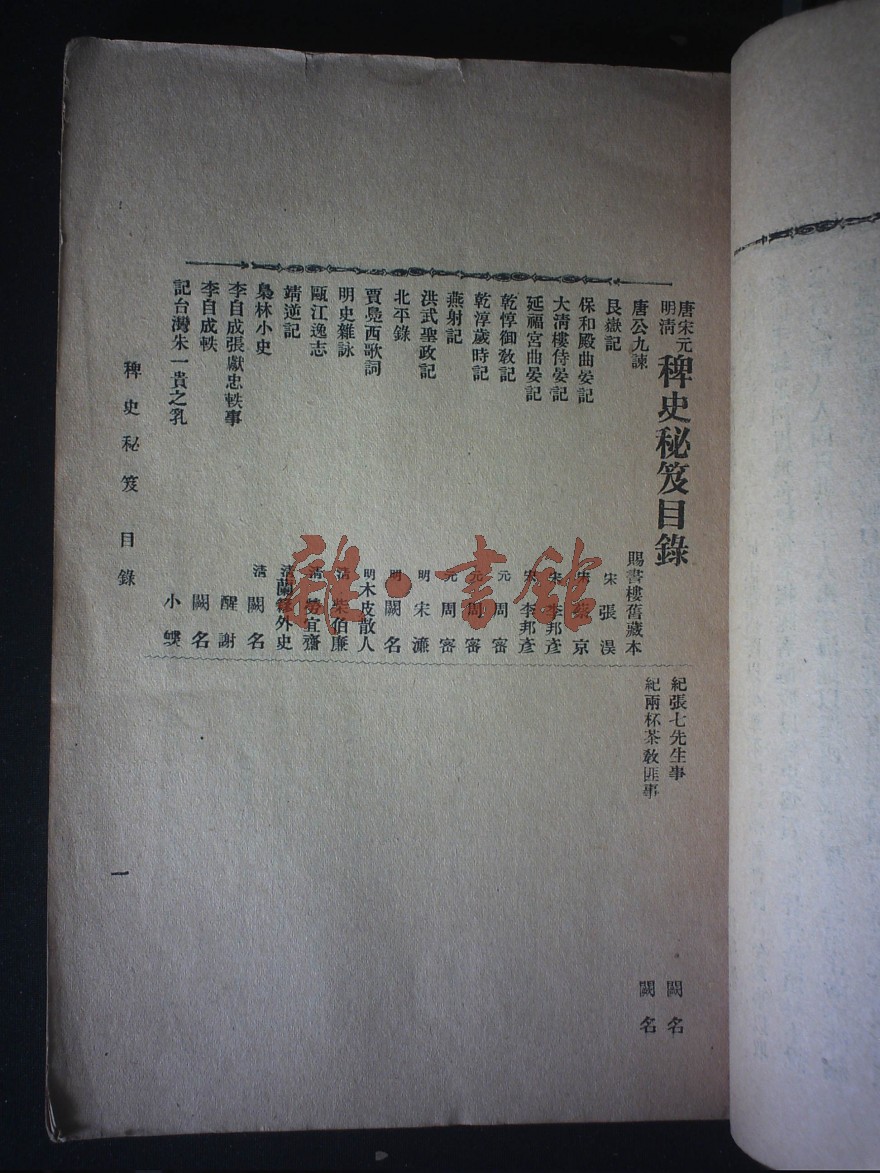 唐宋元
明清
稗史秘笈目錄
唐公九諫
賜書樓舊藏本
艮嶽記
宋 張淏
保和殿曲宴記
宋 蔡京
大清樓侍宴記
宋 李邦彥
延福宮曲宴記
宋 李邦彥
乾惇御敎記
元 周密
乾淳歲時記
元 周密
燕射記
元 周密
洪武聖政記
明 宋濂
北平錄
明 闕名
賈鳧西歌詞
明 木皮散人
明史雜詠
清 柴伯廉
甌江逸志
清 勞宜齋
靖逆記
清 蘭簃外史
梟林小史
清 闕名
李自成張獻忠軼事
醒謝
李自成軼
闕名
記台灣朱一貴之乳
小
紀張七先生事
闕名
紀兩杯茶敎匪事
闕名
稗史秘笈 目錄
一
雜·書館